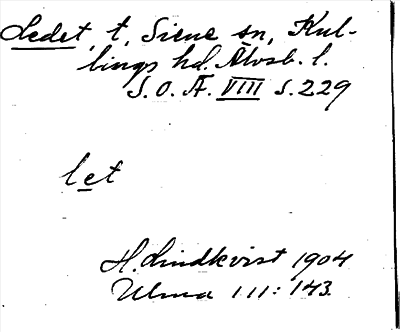 Ledet, t, Siene sn, Kul-
lings hd. Älvsb. l.
S. O. Ä. VIII s. 229
let
H. Lindkvist 1904
Ulma 111: 143.